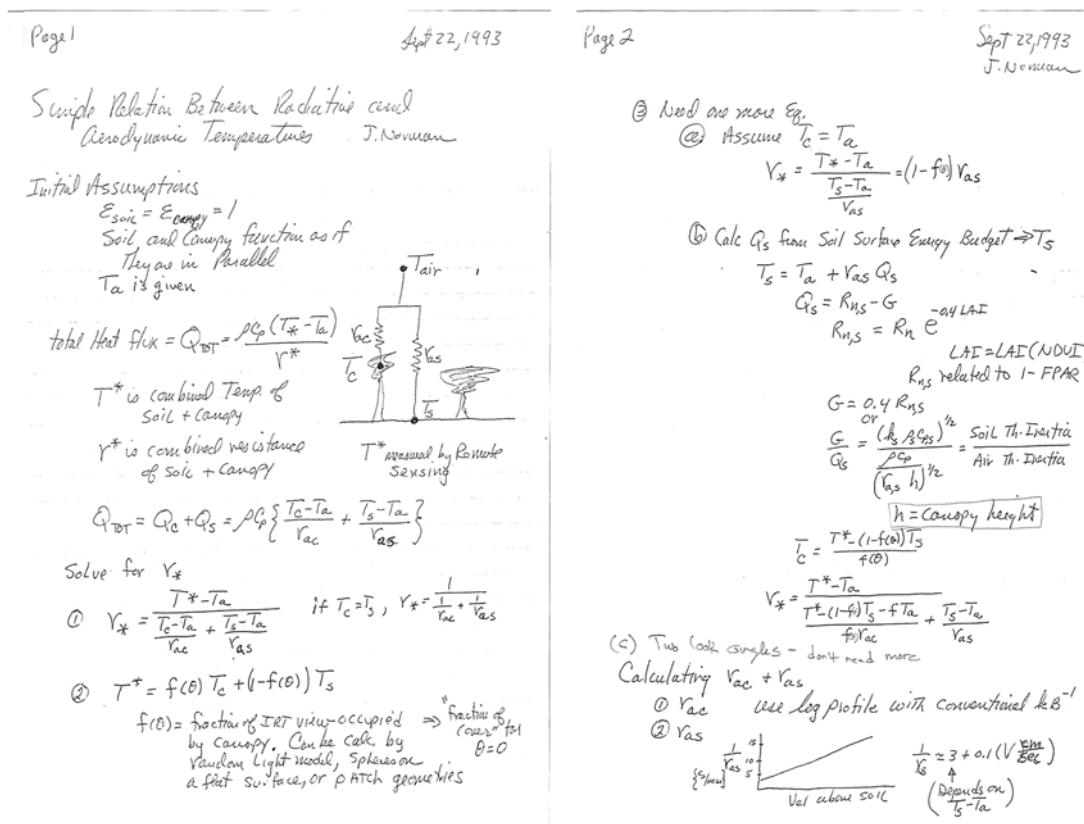 Page 1
Sept 22, 1993
Simple Relation Between Radiative and
Aerodynamic Temperatures J. Norman
Initial Assumptions
ε_soil = ε_canopy = 1
Soil and Canopy function as if
They are in Parallel
Ta is given
total Heat flux = Q_TOT = ρCp (T* - Ta) / r*
T* is combined Temp. of
soil + canopy
r* is combined resistance
of soil + canopy
Tair
rac
ras
Tc
Ts
T* measured by Remote
Sensing
Q_TOT = Qc + Qs = ρCp { (Tc - Ta)/rac + (Ts - Ta)/ras }
Solve for r*
① r* = (T* - Ta) / ((Tc - Ta)/rac + (Ts - Ta)/ras) if Tc = Ts, r* = 1 / (1/rac + 1/ras)
② T* = f(θ) Tc + (1 - f(θ)) Ts
f(θ) = fraction of IRT view occupied ⇒ "fraction of
by canopy. Can be calc by cover" for
random light model, spheres on θ=0
a flat surface, or pATCh geometries
Page 2
Sept 22, 1993
J. Norman
③ Need one more Eq.
ⓐ Assume Tc = Ta
r* = (T* - Ta) / ((Ts - Ta)/ras) = (1 - f(θ)) ras
ⓑ Calc Qs from Soil Surface Energy Budget ⇒ Ts
Ts = Ta + ras Qs
Qs = Rn,s - G
Rn,s = Rn e^(-0.4 LAI)
LAI = LAI (NDVI
Rn,s related to 1 - FPAR
G = 0.4 Rns
or
G/Qs = (ks ρs Cps)^(1/2) / (ρCp / (ra,s h)^(1/2)) = Soil Th. Inertia / Air Th. Inertia
h = canopy height
Tc = (T* - (1 - f(θ)) Ts) / f(θ)
r* = (T* - Ta) / ((T* - (1 - f(θ)) Ts - f Ta) / (f(θ) rac) + (Ts - Ta)/ras)
(c) Two look angles - don't need more
Calculating rac + ras
① rac use log profile with conventional kB⁻¹
② ras
1/ras
{S/mm}
15
10
5
Vel above soil
1/rs ≃ 3 + 0.1 (V cm/sec)
(Depends on
Ts - Ta)